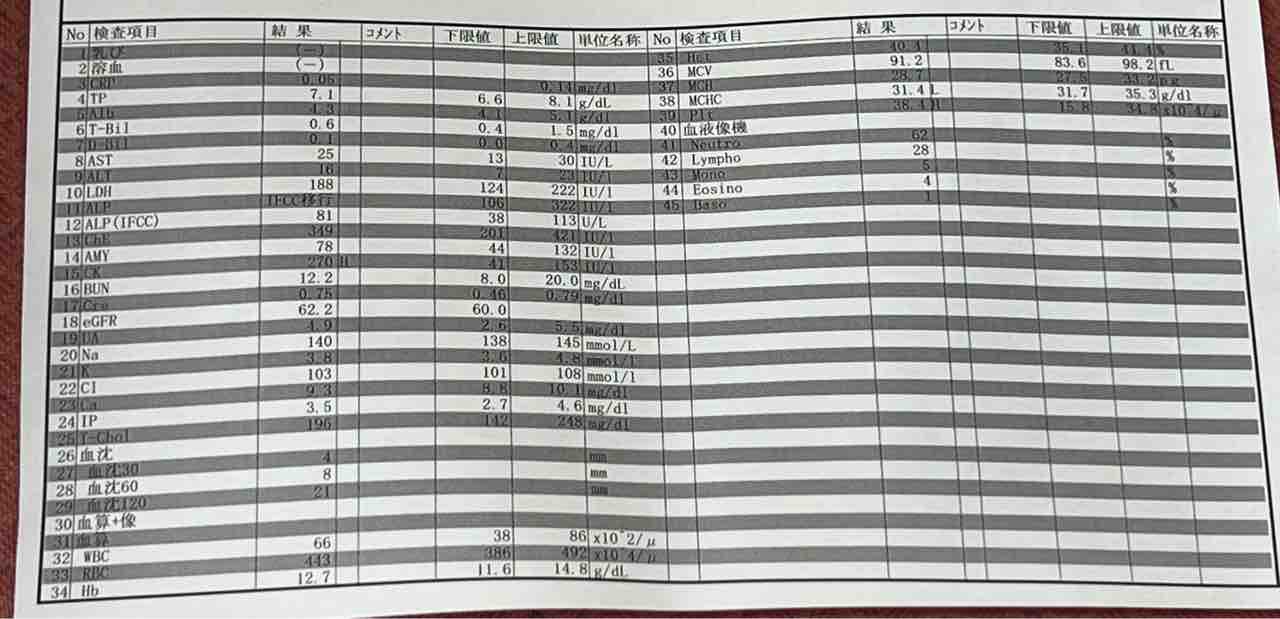 No 検査項目 結果 コメント 下限値 上限値 単位名称
1 乳び (−)
2 溶血 (−)
3 CRP 0.05 0.14 mg/dl
4 TP 7.1 6.6 8.1 g/dL
5 Alb 4.3 4.1 5.1 g/dl
6 T-Bil 0.6 0.4 1.5 mg/dl
7 D-Bil 0.1 0.0 0.4 mg/dl
8 AST 25 13 30 IU/L
9 ALT 16 7 23 IU/l
10 LDH 188 124 222 IU/l
11 ALP IFCC移行 106 322 IU/l
12 ALP(IFCC) 81 38 113 U/L
13 ChE 349 201 421 IU/l
14 AMY 78 44 132 IU/l
15 CK 270 H 41 153 IU/l
16 BUN 12.2 8.0 20.0 mg/dL
17 Cre 0.75 0.46 0.79 mg/dl
18 eGFR 62.2 60.0
19 UA 4.9 2.6 5.5 mg/dl
20 Na 140 138 145 mmol/L
21 K 3.8 3.6 4.8 mmol/l
22 Cl 103 101 108 mmol/l
23 Ca 9.3 8.8 10.1 mg/dl
24 IP 3.5 2.7 4.6 mg/dl
25 T-Chol 196 142 248 mg/dl
26 血沈
27 血沈30 4 mm
28 血沈60 8 mm
29 血沈120 21 mm
30 血算+像
31 血算
32 WBC 66 38 86 x10^2/μ
33 RBC 443 386 492 x10^4/μ
34 Hb 12.7 11.6 14.8 g/dL
No 検査項目 結果 コメント 下限値 上限値 単位名称
35 Hct 40.4 35.1 44.4 %
36 MCV 91.2 83.6 98.2 fL
37 MCH 28.7 27.5 33.2 pg
38 MCHC 31.4 L 31.7 35.3 g/dl
39 Plt 38.4 H 15.8 34.8 x10^4/μ
40 血液像機
41 Neutro 62 %
42 Lympho 28 %
43 Mono 5 %
44 Eosino 4 %
45 Baso 1 %